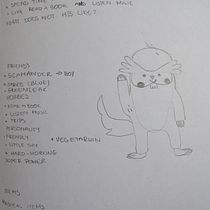 • SPEND TIME
• LIKE READ A BOOK AND LISTEN MUSIC
WHAT DOES NOT HIS LIKE?
FRIENDS
• SCAMANDER → BOY
HOBBIES
• READ A BOOK
• LISTEN MUSIC
• TRIPS
PERSONALITY
• FRIENDLY
• LITTLE SHY
• HARD-WORKING
• VEGETARIAN
SUPER POWER
ITEMS
MAGICAL ITEMS